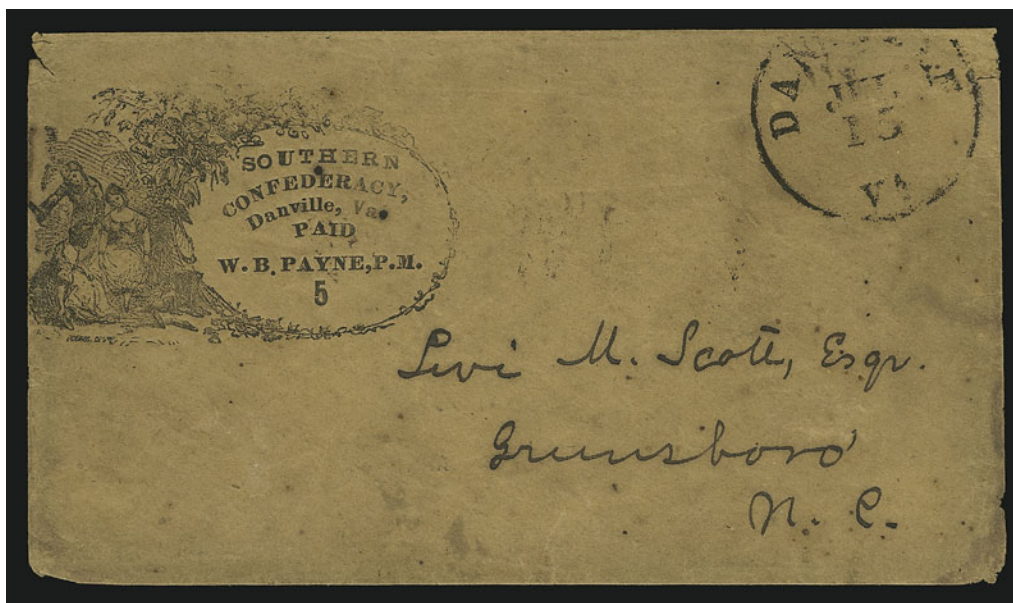 SOUTHERN
CONFEDERACY,
Danville, Va.
PAID
W. B. PAYNE, P.M.
5
JUL
15
VA
Levi M. Scott, Esqr.
Greensboro'
N. C.